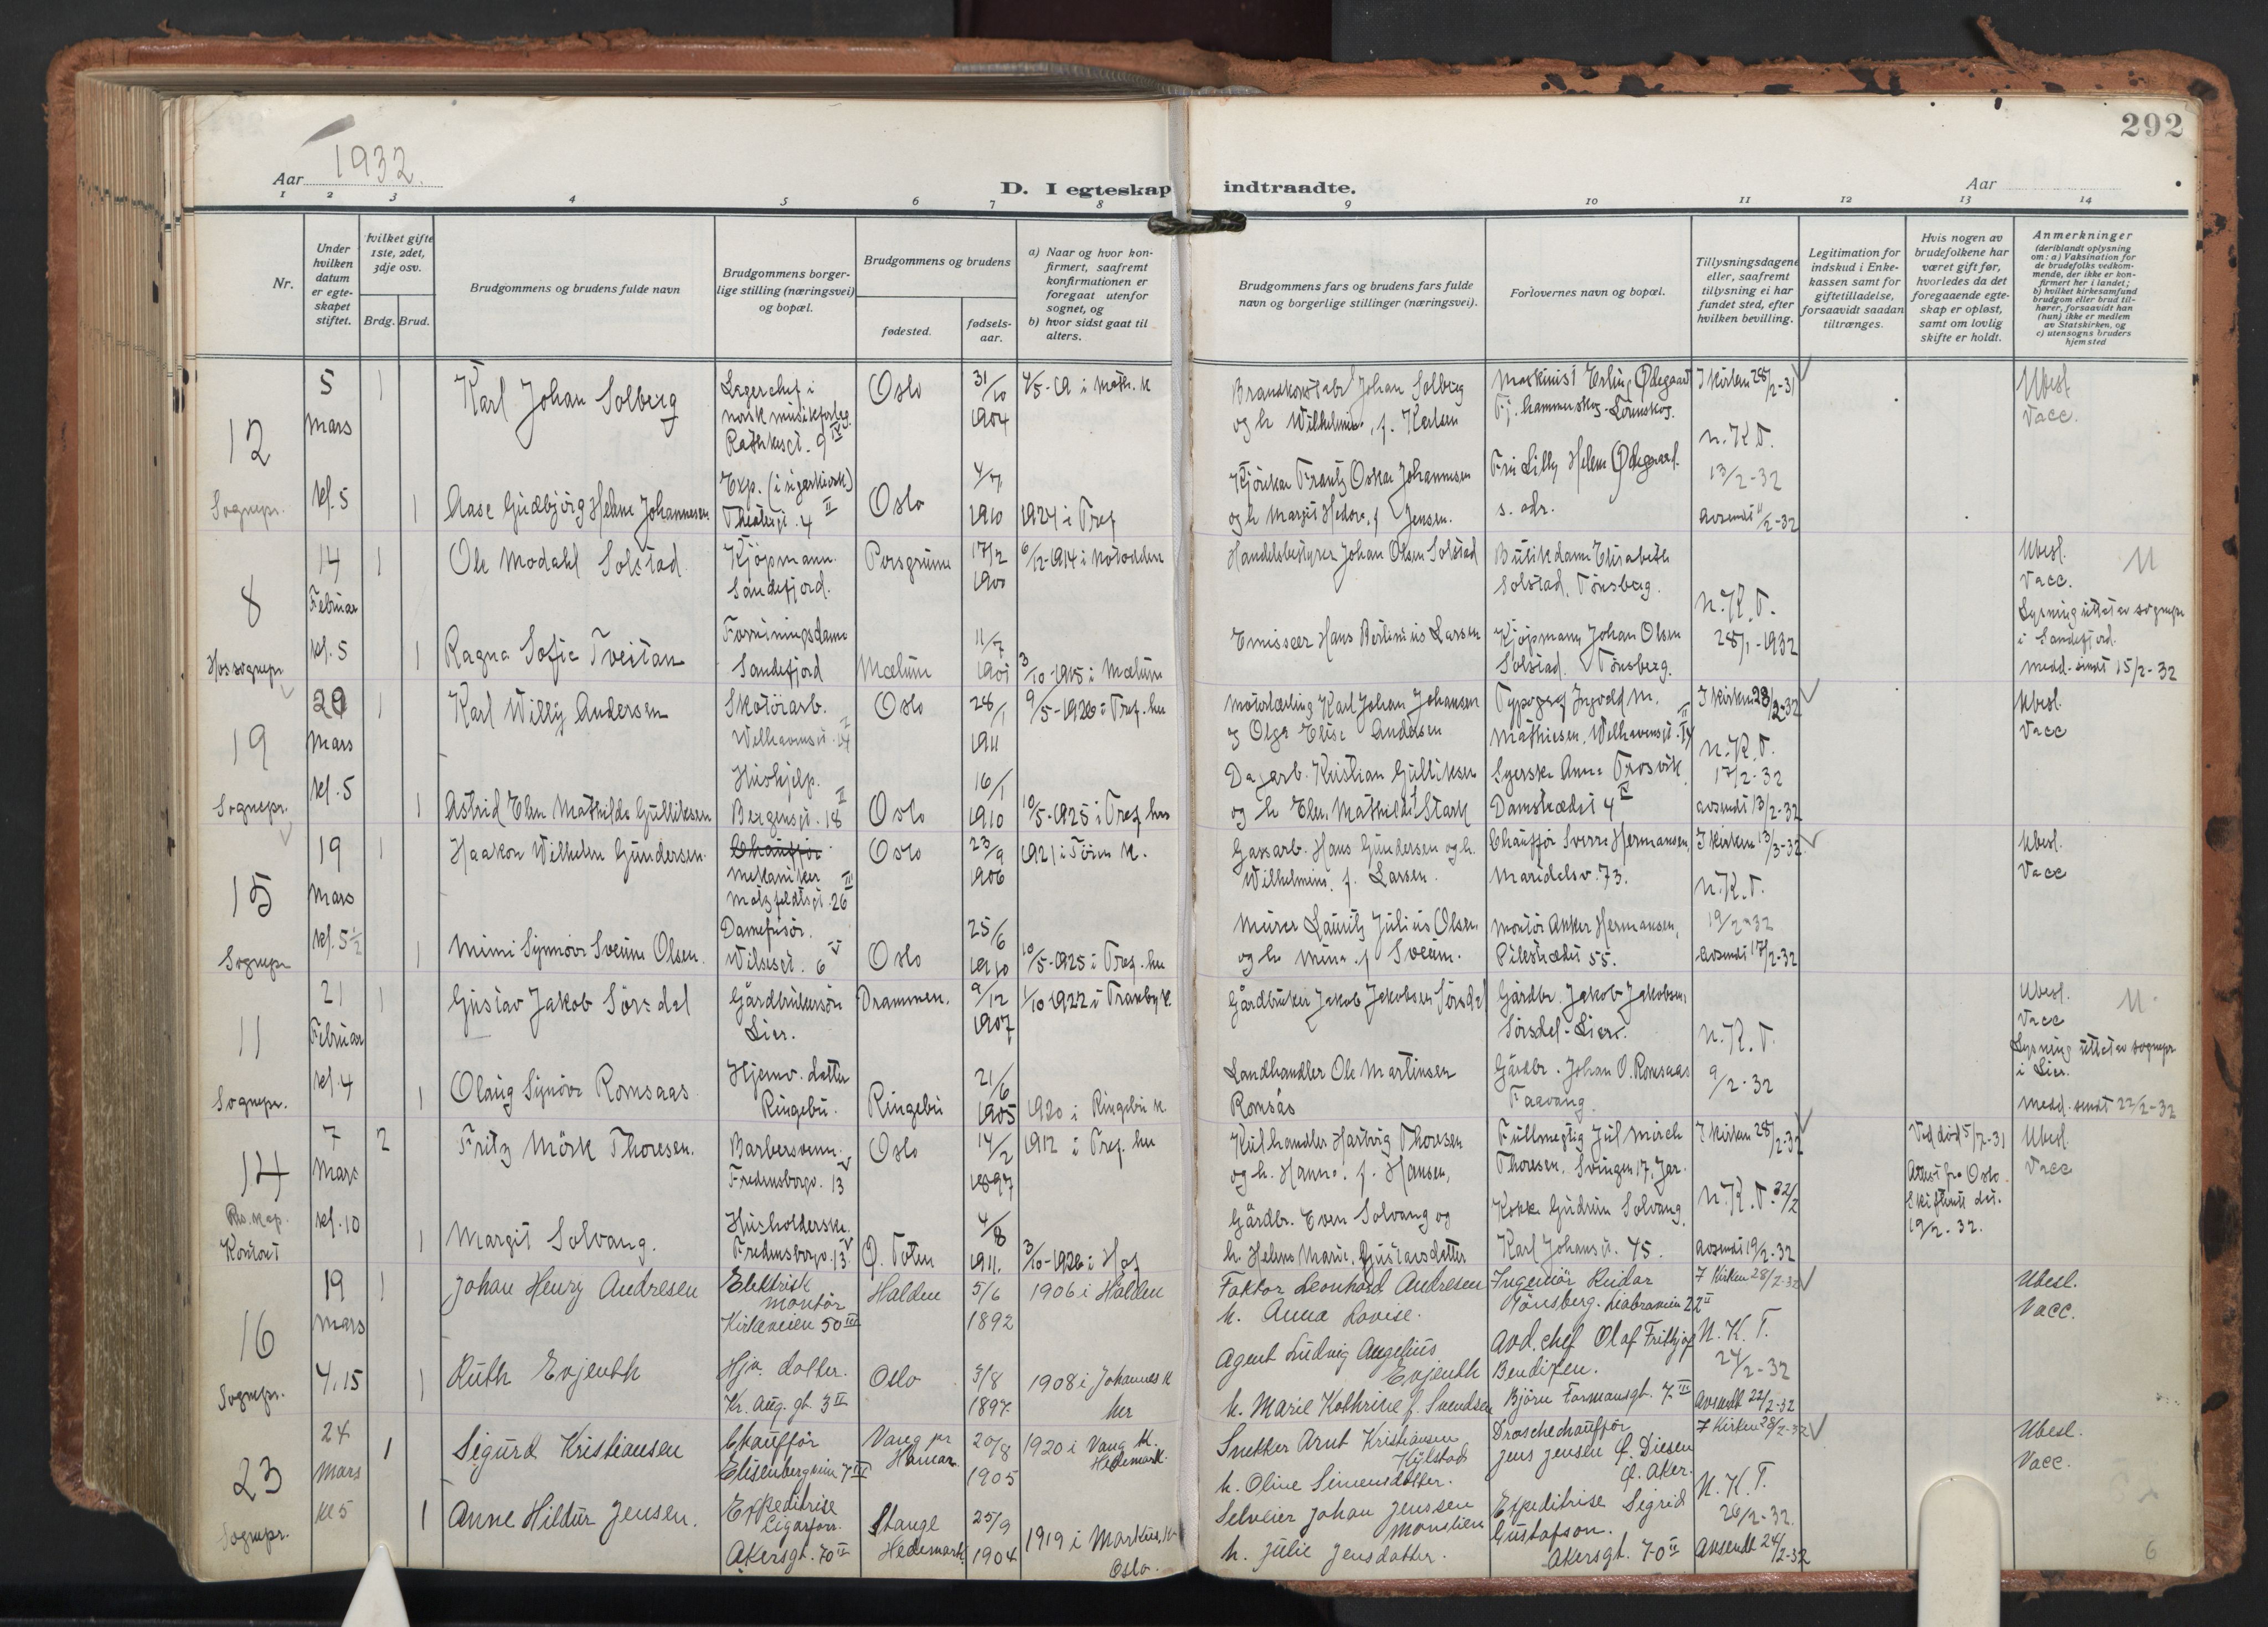 292
Aar 1932.
D. I egteskap indtraadte.
Aar
1 2 3 4 5 6 7 8 9 10 11 12 13 14
Nr.
Under hvilken datum er egteskapet stiftet.
hvilket gifte 1ste, 2det, 3dje osv.
Brdg. Brud.
Brudgommens og brudens fulde navn
Brudgommens borgerlige stilling (næringsvei) og bopæl.
Brudgommens og brudens
fødested.
fødselsaar.
a) Naar og hvor konfirmert, saafremt konfirmationen er foregaat utenfor sognet, og
b) hvor sidst gaat til alters.
Brudgommens fars og brudens fars fulde navn og borgerlige stillinger (næringsvei).
Forlovernes navn og bopæl.
Tillysningsdagene eller, saafremt tillysning ei har fundet sted, efter hvilken bevilling.
Legitimation for indskud i Enkekassen samt for giftetilladelse, forsaavidt saadan tiltrænges.
Hvis nogen av brudefolkene har været gift før, hvorledes da det foregaaende egteskap er opløst, samt om lovlig skifte er holdt.
Anmerkninger
(deriblandt oplysning om: a) Vaksination for de brudefolks vedkommende, der ikke er konfirmert her i landet; b) hvilket kirkesamfund brudgom eller brud tilhører, forsaavidt han (hun) ikke er medlem av Statskirken, og c) utensogns bruders hjemsted
12
Sognepr.
5 Mars kl. 5
1
Karl Johan Solberg
Lagerchef i norsk musikforlag. Rathkesgt. 9 IV
Oslo
31/10 1904
4/5-19 i Math. K
Brandkonstabel Johan Solberg
og h Wilhelmine, f. Karlsen
Maskinist Erling Ødegaard
Fj. hammerskog-Lørenskog.
I kirken 28/2-31
N.K.T.
13/2-32
avsendt 11/2-32
Ubesl.
Vacc.
1
Aase Gudbjørg Helene Johannesen
Exp. (i sigarkiosk)
Theatergt. 4 II
Oslo
4/7 1910
1924 i Tref
Kjørekar Frantz Oskar Johannesen
og h Margit Hedvg, f Jensen.
Fru Lilly Helene Ødegaard.
s. adr.
8
Hos sognepr
14 Februar kl. 5
1
Ole Modahl Solstad
Kjøpmann. Sandefjord.
Porsgrunn
17/2 1900
6/12-1914 i Notodden
Handelsbestyrer Johan Olsen Solstad
Butikdame Elisabeth Solstad, Tønsberg.
N.K.T.
28/1-1932
Ubesl.
Vacc.
Lysning uttat av sognepr i Sandefjord.
Medd. sendt 15/2-32
1
Ragna Sofie Tveitan
Forretningsdame
Sandefjord
Mælum
11/7 1901
3/10-1915 i Mælum
Emissær Hans Bertinius Larsen
Kjøpmann Johan Olsen Solstad. Tønsberg.
19
Sognepr.
29 Mars kl. 5
1
Karl Willy Andersen
Skotøiarb.
Welhavensgt. 14
Oslo
28/1 1911
9/5-1926 i Tref. her
Motorlærling Karl Johan Johansen
og Olga Elise Andersen
Typograf Ingvald M. Mathiesen, Welhavensgt. 14
I kirken 28/2-32
N.K.T.
17/2-32
avsendt 13/2-32
Ubesl.
Vacc
1
Astrid Elen Mathilde Gulliksen
Hushjelp.
Bergensgt. 18 II
Oslo
16/1 1910
10/5-1925 i Tref her
Dagarb. Kristian Gulliksen
og h Elen Mathilde f Stark
Syerske Anna Trosvik
Damstrædet 4 IV
15
Sognepr
19 Mars kl. 5 1/2
1
Haakon Wilhelm Gundersen.
Chauffør
Mekaniker
Motzfeldtsgt. 26 III
Oslo
23/9 1906
1921 i Tøien K.
Gassarb. Hans Gundersen og h.
Wilhelmine, f. Larsen.
Chauffør Sverre Hermansen,
Maridalsv. 73.
I kirken 13/3-32
N.K.T.
19/2-32
avsendt 17/2-32
Ubesl.
Vacc
1
Mimi Synnøve Sveum Olsen.
Damefrisør.
Wilsesgt. 6 V
Oslo
25/6 1910
10/5-1925 i Tref. her
Murer Lauritz Julius Olsen
og h Mina f Sveum.
Montør Anker Hermansen,
Pilestrædet 55.
11
Sognepr.
21 Februar kl. 4
1
Gustav Jakob Sørsdal
Gårdbrukersøn
Lier.
Drammen.
9/12 1907
1/10 1922 i Tranby K.
Gårdbruker Jakob Jakobsen Sørsdal
Gårdbr. Jakob Jakobsen
Sørsdal-Lier.
N.K.T.
9/2-32
Ubesl.
Vacc
Lysning uttat av sognepr i Lier.
Medd. sendt 22/2-32
1
Olaug Synøve Romsaas
Hjemv. datter
Ringebu.
Ringebu
21/6 1905
1920 i Ringebu K
Landhandler Ole Martinsen
Romsås
Gårdbr. Johan O. Romsaas
Faavang
14
Res. kap. Kontoret
7 Mars kl. 10
2
Fritz Mörk Thoresen.
Barbersvenn.
Fredensborgv. 13 V
Oslo
14/2 1897
1912 i Tref. her
Kulhandler Hartvig Thoresen
og h. Hanna, f. Hansen,
Fullmegtig Jul Mörch
Thoresen, Svingen 17, Jar.
I kirken 28/2-32
N.K.T. 22/2
avsendt 19/2-32
Ved død 5/7-31
Attest fra Oslo Skifterett dat. 19/2-32.
Ubesl.
Vacc
1
Margit Solvang.
Husholderske.
Fredensborgv. 13 V
Ø. Toten
4/8 1911.
3/10-1926 i Hof
Gårdbr. Even Solvang og
h. Helene Marie, Gustavsdatter
Kokke Gudrun Solvang.
Karl Johansgt. 45.
16
Sognepr.
19 Mars 4.15
1
Johan Henry Andresen
Elektrisk montør
Kirkeveien 50 III
Halden
5/6 1892
1906 i Halden
Faktor Leonhard Andresen
h. Anna Lovise.
Ingeniør Reidar
Tønsberg. Liabraveien 22 II
I Kirken 28/2-32
N.K.T.
24/2-32
Avsendt 22/2-32
Ubesl.
Vacc.
1
Ruth Evjenth
Hjv. datter.
Kr. Aug. gt. 3 II
Oslo
3/8 1897.
1908 i Johannes K her
Agent Ludvig Angelius Evjenth
h. Marie Kathrine f. Svendsen
Avd. chef Olaf Frithjof
Bendixen.
Bjørn Farmansgt. 7 III
23
Sognepr.
24 Mars kl 5
1
Sigurd Kristiansen
Chauffør
Elisenbergveien 7 III
Vang pr Hamar.
20/8 1905
1920 i Vang K. Hedemark.
Snekker Arnt Kristiansen Kylstad
h. Oline Simensdatter.
Droschechauffør
Jens Jensen Ø. Diesen
Ø. Aker.
I Kirken 28/2-32
N.K.T.
26/2-32.
Avsendt 24/2-32
Ubesl.
Vacc.
1
Anne Hildur Jensen.
Expeditrise
Cigarforr.
Akersgt. 70 II
Stange Hedemark
25/9 1904
1919 i Markus K. Oslo.
Selveier Johan Jenssen Monslien
h. Julie Jensdatter.
Expeditrise Sigrid
Gustafson.
Akersgt. 70 II
6